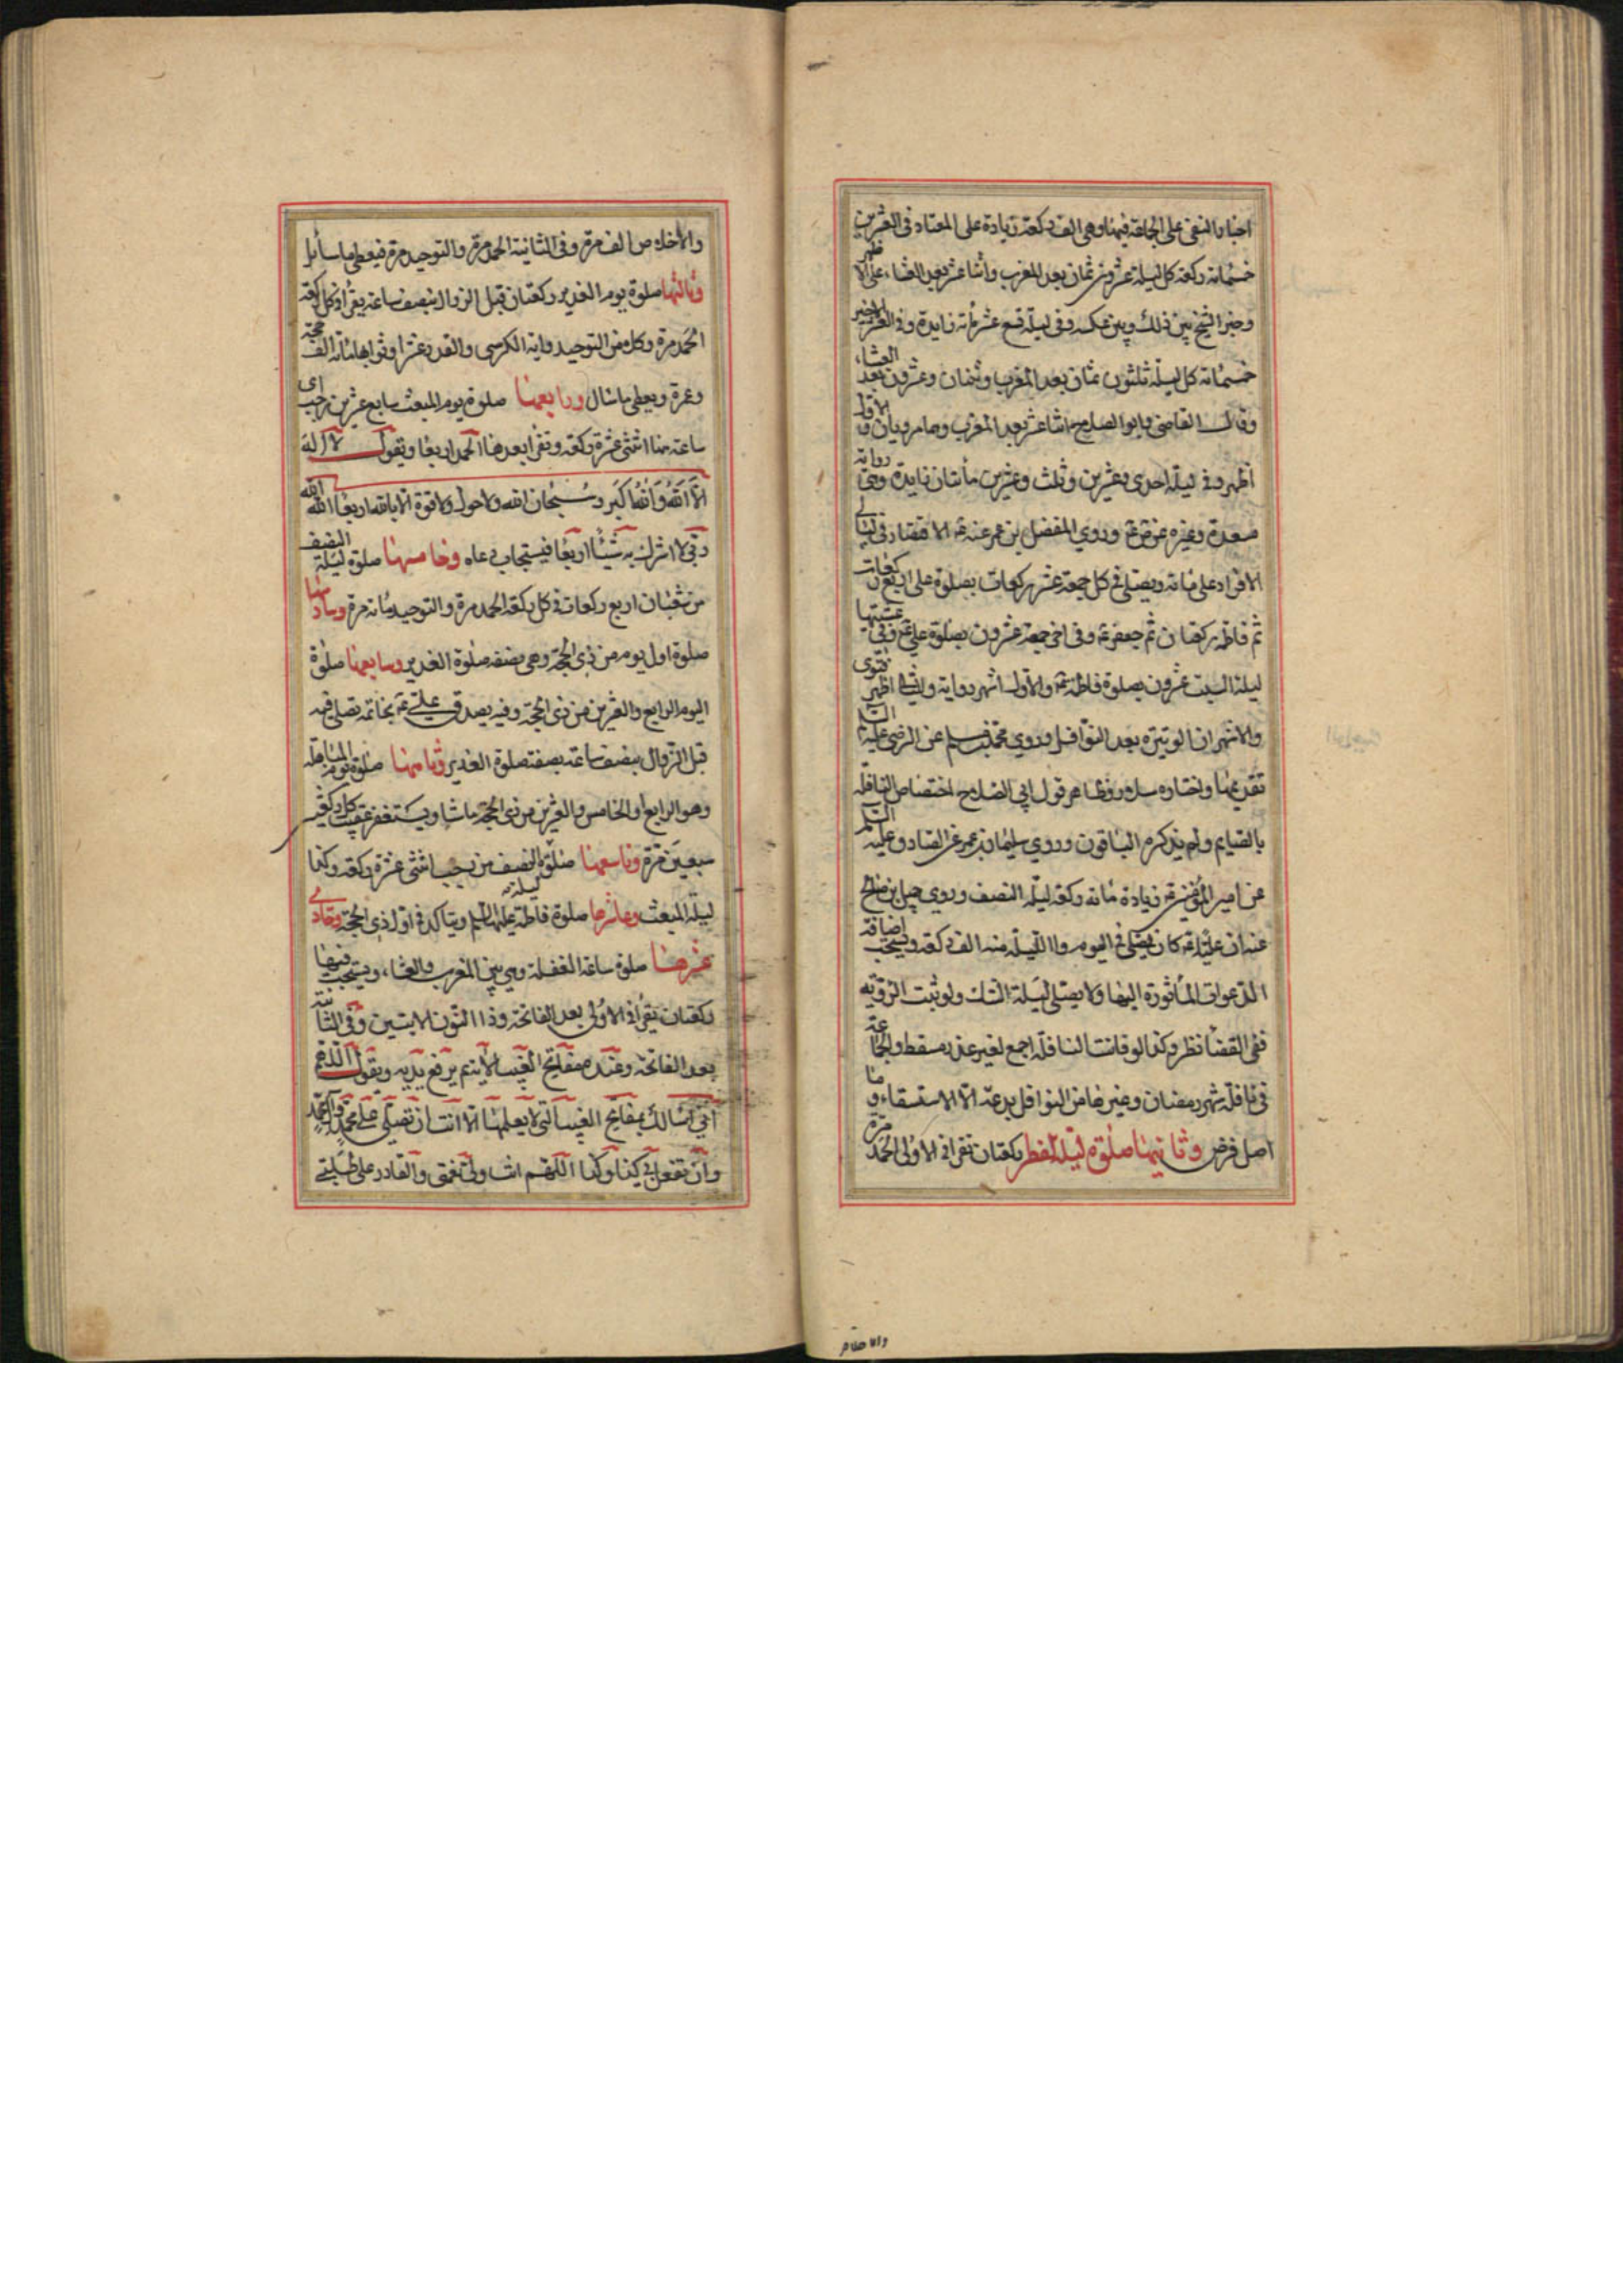 اخبار النفي على الجماعة فيها وهي الف ركعة زيادة على المعتاد في العشرين
خمسمائة ركعة كل ليلة عشرون ثمان بعد المغرب واثنا عشر بعد العشاء على الاظهر
وخير الشيخ بين ذلك وبين عكسه وفي ليلة تسع عشر مائة زايدة وفي العشر الاخير
خمسمائة كل ليلة ثلثون ثمان بعد المغرب وثنتان وعشرون بعد العشاء
وقال القاضي وابو الصلاح اثنا عشر بعد المغرب وهما مرويان والاول
اظهر وفي ليلة احدى وعشرين وثلث وعشرين مأتان زايدة وهي رواية
مسعدة وغيره عن ص ع وروي المفضل بن عمر عنه ع الاقتصار في ليالي
الافراد على مائة ويصلي في كل جمعة عشر ركعات بصلوة علي اربع ركعات
ثم فاطمة ركعتان ثم جعفر ع وفي اخر جمعة عشرون بصلوة علي ع وفي عشيتها
ليلة السبت عشرون بصلوة فاطمة ع والاول اشهر رواية والثاني اظهر فتوى
والاشهر ان الوتيرة بعد النوافل وروي محمد بن سلم عن الرضي عليه السلم
تقديمها واختاره سلار وظاهر قول ابي الصلاح اختصاص النافلة
بالقيام ولم يذكره الباقون وروي سليمان بن عمر عن الصادق عليه السلم
عن امير المؤمنين ع زيادة مائة ركعة ليلة النصف وروي جميل بن صالح
عنه ان عليا ع كان يصلي في اليوم والليلة منه الف ركعة ويستحب اضافة
الدعوات المأثورة اليها ولا يصلي ليلة الشك ولو ثبت الرؤية
ففي القضا نظر وكذا لو فاتت النافلة اجمع لغير عذر مسقط والجماعة
في نافلة شهر رمضان وغيرها من النوافل بدعة الا الاستسقاء وما
اصل فرض وثانيها صلوة ليلة الفطر ركعتان تقرا في الاولى الحمد مرة
والاخلاص
والاخلاص الف مرة وفي الثانية الحمد مرة والتوحيد مرة فيعطي ما سأل
وثالثها صلوة يوم الغدير ركعتان قبل الزوال بنصف ساعة يقرأ في كل ركعة
الحمد مرة وكلا من التوحيد واية الكرسي والقدر عشرا وثوابها مائة الف حجة
وعمرة ويعطى ما سال ورابعها صلوة يوم المبعث سابع عشرين رجب اي
ساعة منه اثنتي عشرة ركعة وتقرا بعدها الحمد اربعا ويقول لا اله
الا الله والله اكبر وسبحان الله ولا حول ولا قوة الا بالله اربعا الله الله
ربي لا اشرك به شيئا اربعا فيستجاب دعاه وخامسها صلوة ليلة النصف
من شعبان اربع ركعات في كل ركعة الحمد مرة والتوحيد مائة مرة وسادسها
صلوة اول يوم من ذي الحجة وهي بصفة صلوة الغدير وسابعها صلوة
اليوم الرابع والعشرين من ذي الحجة وفيه يصدق علي ع بخاتمه تصلى فيه
قبل الزوال بنصف ساعة بصفة صلوة الغدير وثامنها صلوة يوم المباهلة
وهو الرابع او الخامس والعشرين من ذي الحجة ما شا ويستغفر عقيب كل ركعتين
سبعين مرة وتاسعها صلوة ليلة النصف من رجب اثنتي عشرة ركعة وكذا
ليلة المبعث وعاشرها صلوة فاطمة عليها السلم ويتاكد في اول ذي الحجة وحادي
عشرها صلوة ساعة الغفلة وهي بين المغرب والعشاء ويستحب فيها
ركعتان يقرا في الاولى بعد الفاتحة وذا النون الايتين وفي الثانية
بعد الفاتحة وعنده مفاتيح الغيب الاية ثم يرفع يديه ويقول اللهم
اني اسالك بمفاتيح الغيب التي لا يعلمها الا انت ان تصلي على محمد وال محمد
وان تفعل بي كذا وكذا اللهم انت ولي نعمتي والقادر على طلبتي